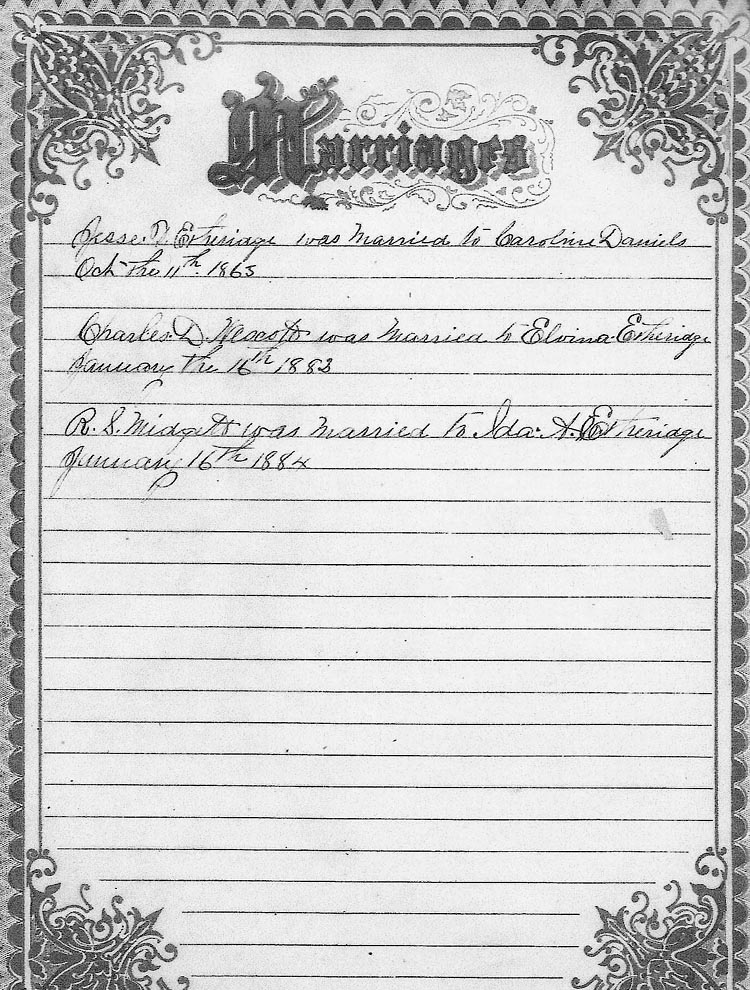 Marriages
Jesse T Etheridge was Married to Caroline Daniels
Oct the 11th 1865
Charles D Wescott was Married to Elvina Etheridge
January the 16th 1883
R. S. Midgett was Married to Ida A. Etheridge
January 16th 1884